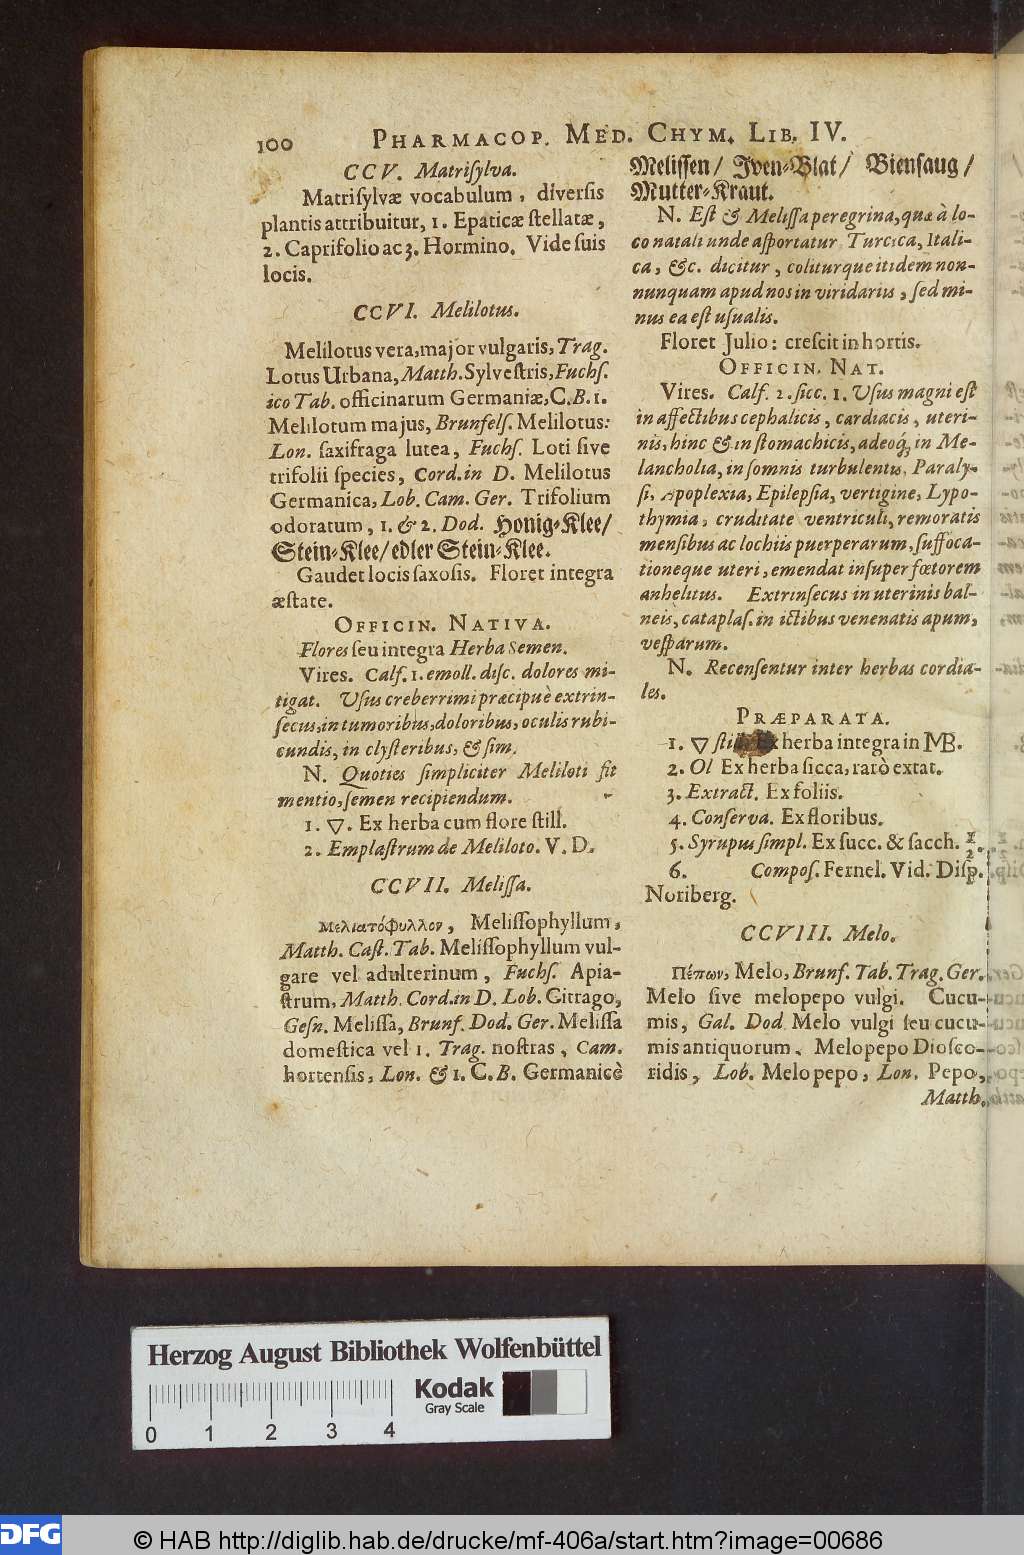 100 PHARMACOP. MED. CHYM. LIB. IV.
CCV. Matriſylva.
Matriſylvæ vocabulum, diverſis
plantis attribuitur, 1. Epaticæ ſtellatæ,
2. Caprifolio ac 3. Hormino. Vide ſuis
locis.
CCVI. Melilotus.
Melilotus vera, major vulgaris, Trag.
Lotus Urbana, Matth. Sylveſtris, Fuchſ.
ico Tab. officinarum Germaniæ, C.B. 1.
Melilotum majus, Brunfelſ. Melilotus:
Lon. ſaxifraga lutea, Fuchſ. Loti ſive
trifolii ſpecies, Cord. in D. Melilotus
Germanica, Lob. Cam. Ger. Trifolium
odoratum, 1. & 2. Dod. Honig-Klee/
Stein-Klee/ edler Stein-Klee.
Gaudet locis ſaxoſis. Floret integra
æſtate.
OFFICIN. NATIVA.
Flores ſeu integra Herba Semen.
Vires. Calf. 1. emoll. diſc. dolores mi-
tigat. Uſus creberrimi præcipuè extrin-
ſecus, in tumoribus, doloribus, oculis rubi-
cundis, in clyſteribus, & ſim.
N. Quoties ſimpliciter Meliloti fit
mentio, ſemen recipiendum.
1. ▽. Ex herba cum flore ſtill.
2. Emplaſtrum de Meliloto. V. D.
CCVII. Meliſſa.
Μελιατόφυλλον, Meliſſophyllum,
Matth. Caſt. Tab. Meliſſophyllum vul-
gare vel adulterinum, Fuchſ. Apia-
ſtrum, Matth. Cord. in D. Lob. Cittago,
Geſn. Meliſſa, Brunf. Dod. Ger. Meliſſa
domeſtica vel 1. Trag. noſtras, Cam.
hortenſis, Lon. & 1. C.B. Germanicè
Meliſſen/ Iven-Blat/ Bienſaug/
Mutter-Kraut.
N. Eſt & Meliſſa peregrina, quæ à lo-
co natali unde aſportatur Turcica, Itali-
ca, &c. dicitur, coliturque itidem non-
nunquam apud nos in viridariis, ſed mi-
nus ea eſt uſualis.
Floret Julio: creſcit in hortis.
OFFICIN. NAT.
Vires. Calf. 2. ſicc. 1. Uſus magni eſt
in affectibus cephalicis, cardiacis, uteri-
nis, hinc & in ſtomachicis, adeoq́; in Me-
lancholia, in ſomnis turbulentis, Paraly-
ſi, Apoplexia, Epilepſia, vertigine, Lypo-
thymia, cruditate ventriculi, remoratis
menſibus ac lochiis puerperarum, ſuffoca-
tioneque uteri, emendat inſuper fœtorem
anhelitus. Extrinſecus in uterinis bal-
neis, cataplaſ. in ictibus venenatis apum,
veſparum.
N. Recenſentur inter herbas cordia-
les.
PRÆPARATA.
1. ▽ ſtill. Ex herba integra in MB.
2. Ol Ex herba ſicca, rarò extat.
3. Extract. Ex foliis.
4. Conſerva. Ex floribus.
5. Syrupus ſimpl. Ex ſucc. & ſacch.
6. Compoſ. Fernel. Vid. Diſp.
Noriberg.
CCVIII. Melo.
Πέπων, Melo, Brunf. Tab. Trag. Ger.
Melo ſive melopepo vulgi. Cucu-
mis, Gal. Dod. Melo vulgi ſeu cucu-
mis antiquorum. Melopepo Dioſco-
ridis, Lob. Melopepo, Lon. Pepo,
Matth.
Herzog August Bibliothek Wolfenbüttel
Kodak
Gray Scale
0 1 2 3 4
DFG © HAB http://diglib.hab.de/drucke/mf-406a/start.htm?image=00686